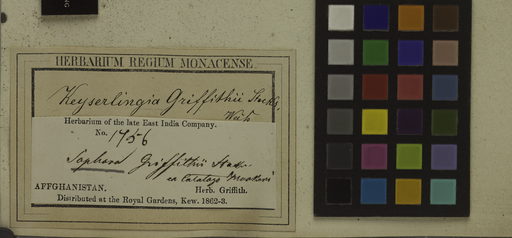 HERBARIUM REGIUM MONACENSE.
Keyserlingia Griffithii Stocks
Herbarium of the late East India Company.
No. 1756
Sophora Griffithii Stocks
AFFGHANISTAN. Herb. Griffith.
Distributed at the Royal Gardens, Kew. 1862-3.